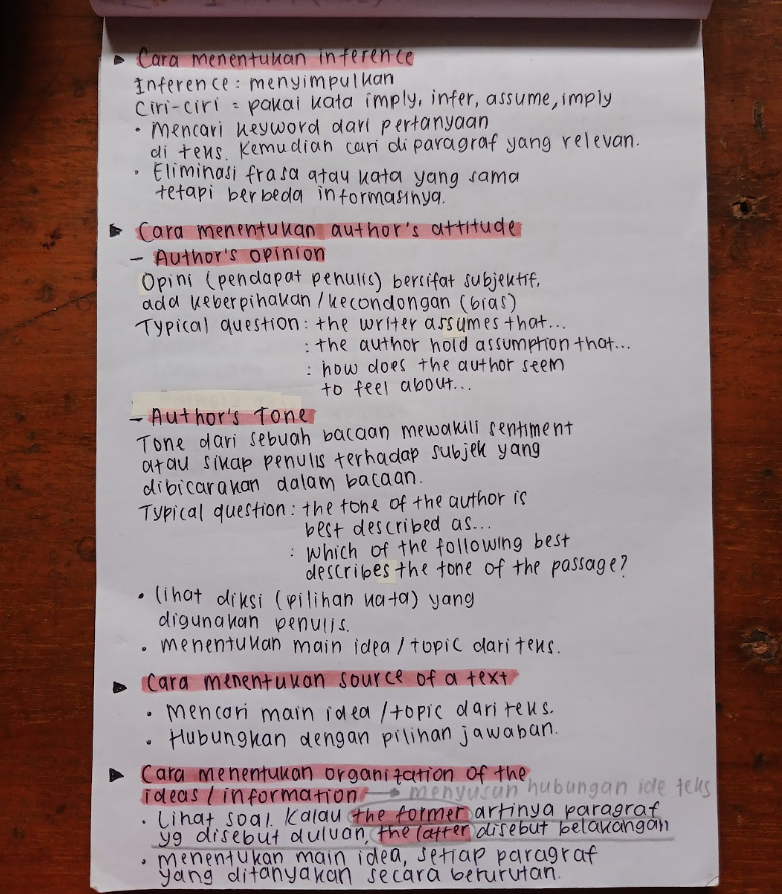 Cara menentukan inference
Inference : menyimpulkan
Ciri-ciri = pakai kata imply, infer, assume, imply
• Mencari keyword dari pertanyaan
di teks. Kemudian cari di paragraf yang relevan.
• Eliminasi frasa atau kata yang sama
tetapi berbeda informasinya.
Cara menentukan author's attitude
- Author's opinion
Opini (pendapat penulis) bersifat subjektif,
ada keberpihakan / kecondongan (bias)
Typical question : the writer assumes that...
: the author hold assumption that...
: how does the author seem
to feel about...
- Author's Tone
Tone dari sebuah bacaan mewakili sentiment
atau sikap penulis terhadap subjek yang
dibicarakan dalam bacaan.
Typical question : the tone of the author is
best described as...
: which of the following best
describes the tone of the passage?
• lihat diksi (pilihan kata) yang
digunakan penulis.
• menentukan main idea / topic dari teks.
Cara menentukan source of a text
• Mencari main idea / topic dari teks.
• Hubungkan dengan pilihan jawaban.
Cara menentukan organization of the
ideas / information → menyusun hubungan ide teks
• Lihat soal. Kalau the former artinya paragraf
yg disebut duluan, the latter disebut belakangan
• menentukan main idea, setiap paragraf
yang ditanyakan secara berurutan.